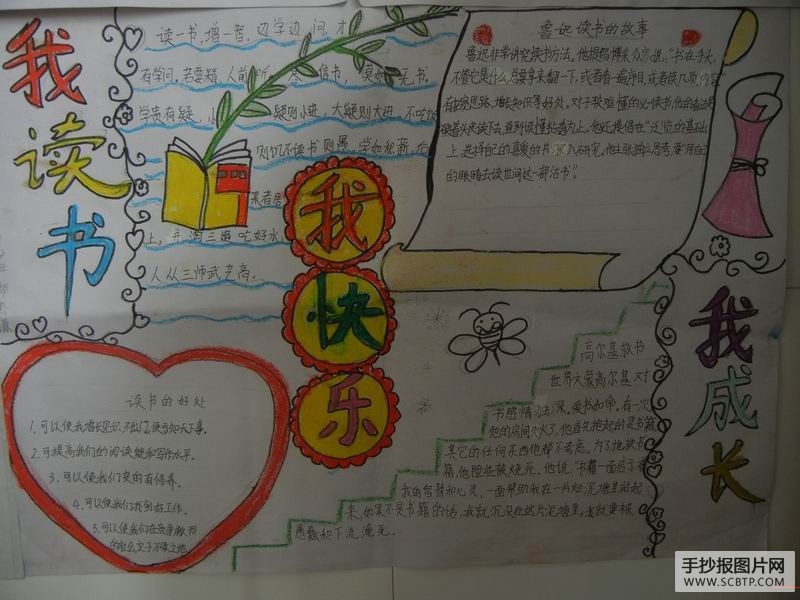 我读书
读一书,增一智, 边学边问, 才
有学问。若要精,人前听。 信书, 无书。
学贵有疑, 小疑则小进,大疑则大进,不
则 不读书则愚。学如积薪,后
来者居
上,井淘三遍吃好水,
人从三师武艺高。
我
快
乐
鲁迅读书的故事
鲁迅非常讲究读书方法。他提倡博采众家说:“书在手头,
不管它是什么,总要拿来翻一下,或者看一遍序目,或者读几页内容”
思路,增长知识等好处。对于较难懂的必读书,他
硬着头皮读下去,直到读懂钻透为止。他还提倡在“泛览”的基础
上,选择自己的喜爱的 入研究,他主张独立思考,要“用自己
的眼睛去读世间这一部活书”。
我成长
读书的好处
1.可以使我增长见识,不出门,便可知天下事。
2.可提高我们的阅读能和写作水平。
3.可以使我们变的有修养。
4.可以使我们找到好工作。
5.可以使我们在竞争激烈
的社会立于不败之地
高尔基救书
世界文豪高尔基对
书感情独深,爱书如命。有一次,
他的房间失火了,他首先抱起的是书籍,
其它的任何东西他都不考虑。为了抢救书
籍,他险些被烧死。他说:“书籍一面启示着
我的智慧和心灵,一面帮助我在一片烂泥塘里站起
来,如果不是书籍的话,我就沉没在这片泥塘里,我就要被
愚蠢和下流淹死。
手抄报图片网
WWW.SCBTP.COM